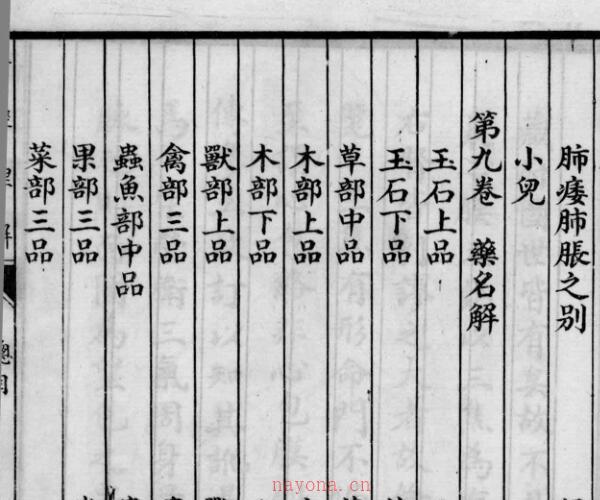 肺痿肺脹之别
小兒
第九卷 藥名解
玉石上品
玉石下品
草部中品
木部上品
木部下品
獸部上品
禽部三品
蟲魚部中品
果部三品
菜部三品
總目
nayona.cn